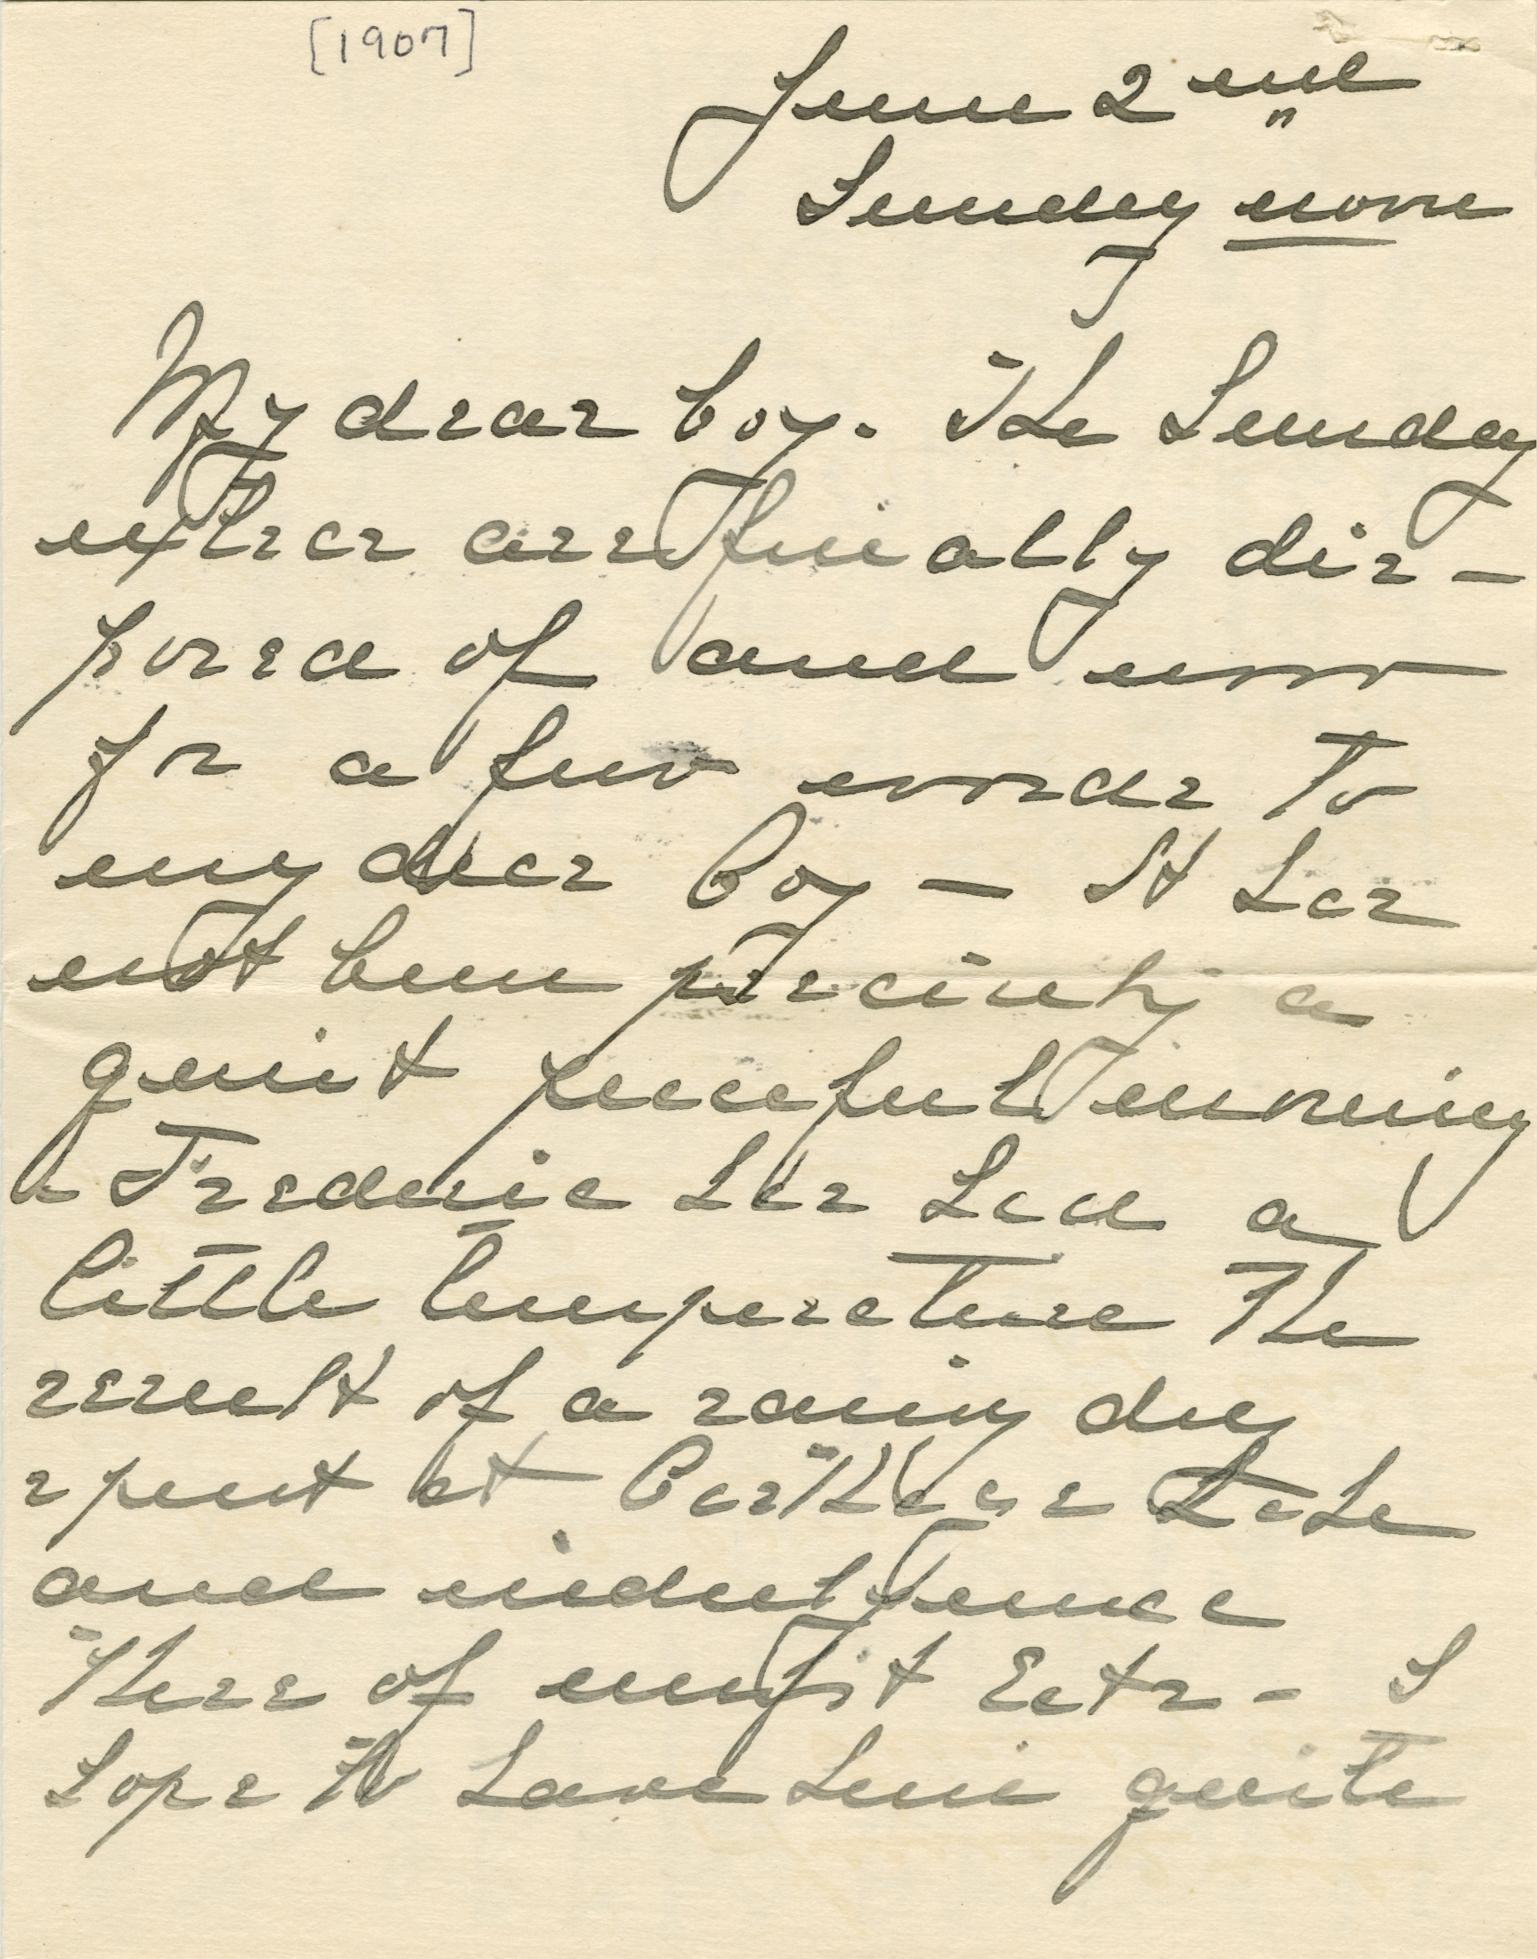 [1907]
June 2nd
Sunday noon
My dear boy. The Sunday
extras are finally dis-
posed of and now
for a few words to
my dear boy - It has
not been precisely a
quiet peaceful morning
- Frederic has had a
little temperature the
result of a rainy day
spent at
and indulgence
there of unfit Eats - I
hope to have him quite